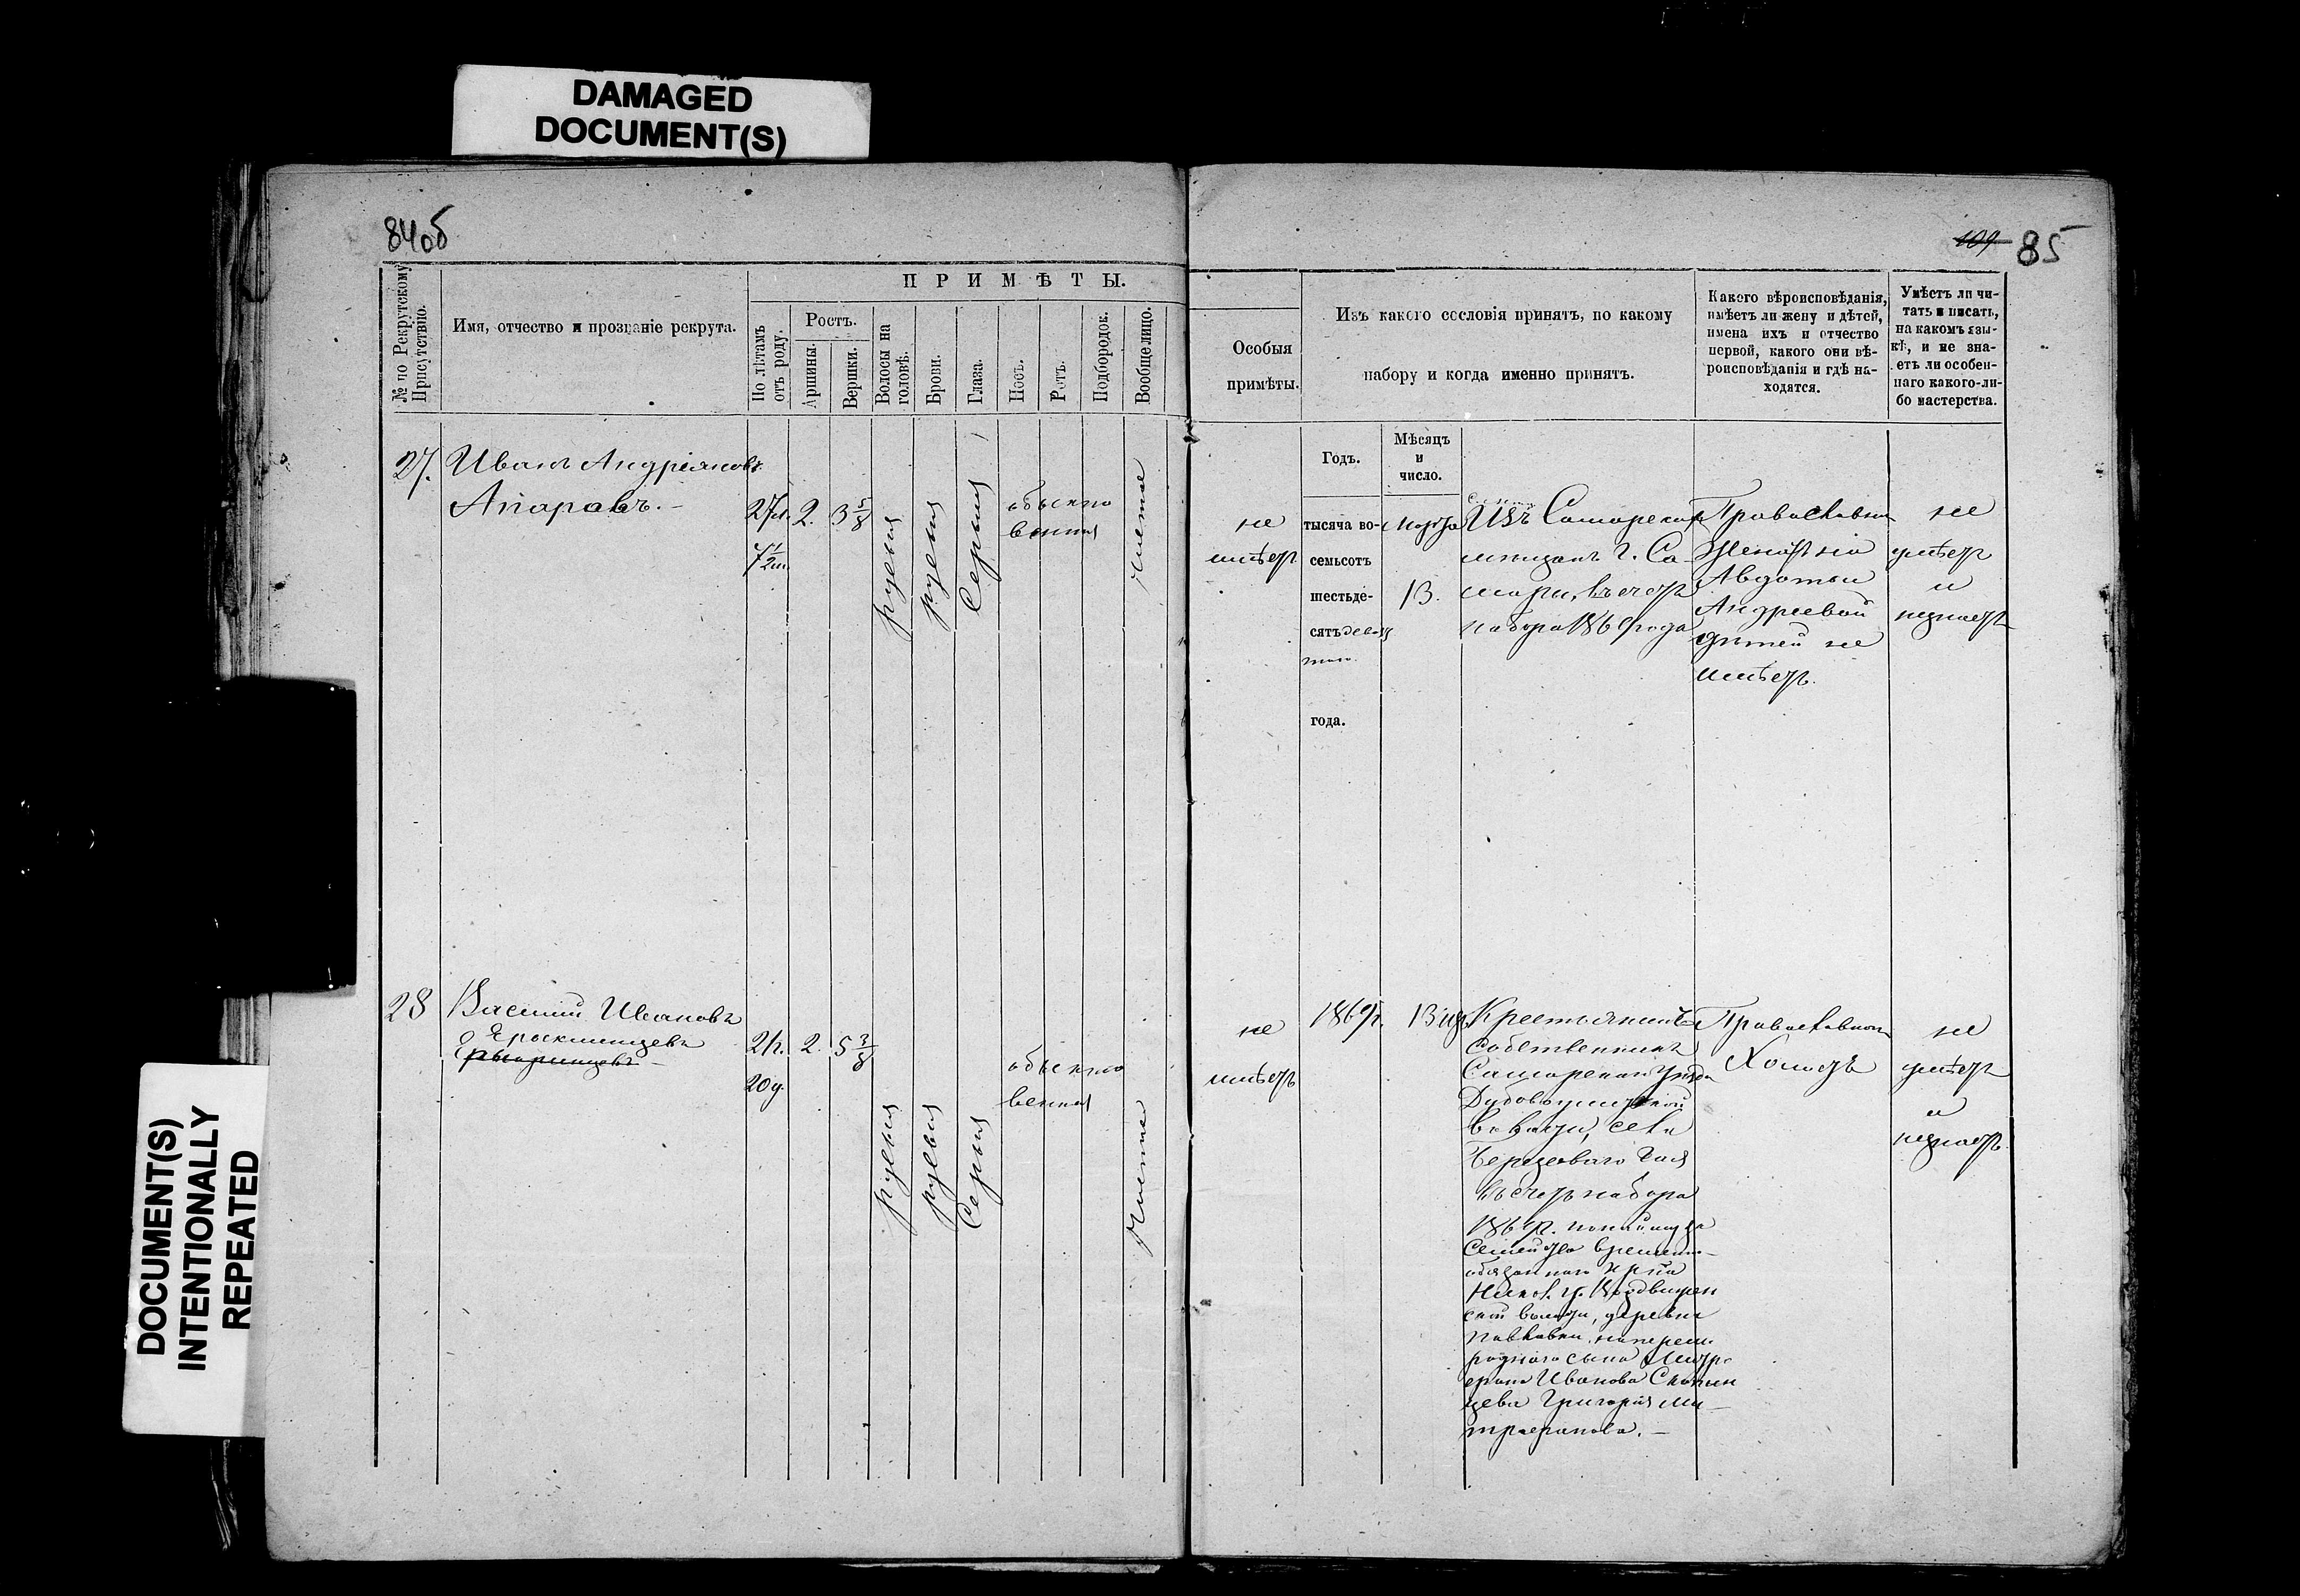 DAMAGED
DOCUMENT(S)
84об
109 85
ПРИМѢТЫ.
№ по Рекрутскому
Присутствію.
Имя, отчество и прозваніе рекрута.
По лѣтамъ
отъ роду.
Ростъ.
Аршины.
Вершки.
Волосы на
головѣ.
Брови.
Глаза.
Носъ.
Ротъ.
Подбородок.
Вообще лицо.
Особыя
примѣты.
Изъ какого сословія принятъ, по какому
набору и когда именно принятъ.
Какого вѣроисповѣданія,
имѣетъ ли жену и дѣтей,
имена ихъ и отчество
первой, какого они вѣ-
роисповѣданія и гдѣ на-
ходятся.
Умѣетъ ли чи-
тать и писать,
на какомъ язы-
кѣ, и не зна-
етъ ли особен-
наго какого-ли-
бо мастерства.
Годъ.
Мѣсяцъ
и
число.
27. Иванъ Андріановъ
27л. 2. 3 5/8
7 1/2 м.
русыя
русыя
Серыя
обыкно
венныя
чистое
не
имѣетъ
тысяча во-
семьсотъ
шестьде-
сятъ девя
таго
года.
Марта
13.
Изъ Самарскихъ
мѣщанъ г. Са-
мары, въ счетъ
набора 1869 года
Православн
женатъ на
Авдотьи
Андреевой
дѣтей не
имѣетъ.
не
умѣетъ
и
незнаетъ
28 Василий Ивановъ
Ерыклинцевъ
21г. 2. 5 3/8
20д.
русыя
русыя
Серыя
обыкно
венныя
Чистое
не
имѣетъ
1869г.
13
Крестьянинъ
Собственникъ
Самарскаго уѣзда
Дубовоуметской
волости, села
Березоваго Гая
въ счетъ набора
1869г. по найму за
Семейство временно-
обязаннаго кр-на
Никол. у. Воздвижен
ской волости, деревни
Павловки
роднаго сына Митро
фана Иванова Скопин
цева Григорія Ми-
трофанова. —
Православнаго
Холостъ
не
умѣетъ
и
незнаетъ.
DOCUMENT(S)
INTENTIONALLY
REPEATED